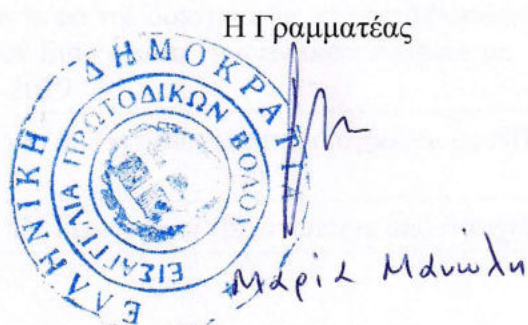 Η Γραμματέας
ΕΛΛΗΝΙΚΗ ΔΗΜΟΚΡΑΤΙΑ
ΕΙΣΑΓΓΕΛΙΑ ΠΡΩΤΟΔΙΚΩΝ ΒΟΛΟΥ
Μαρία Μανωλη